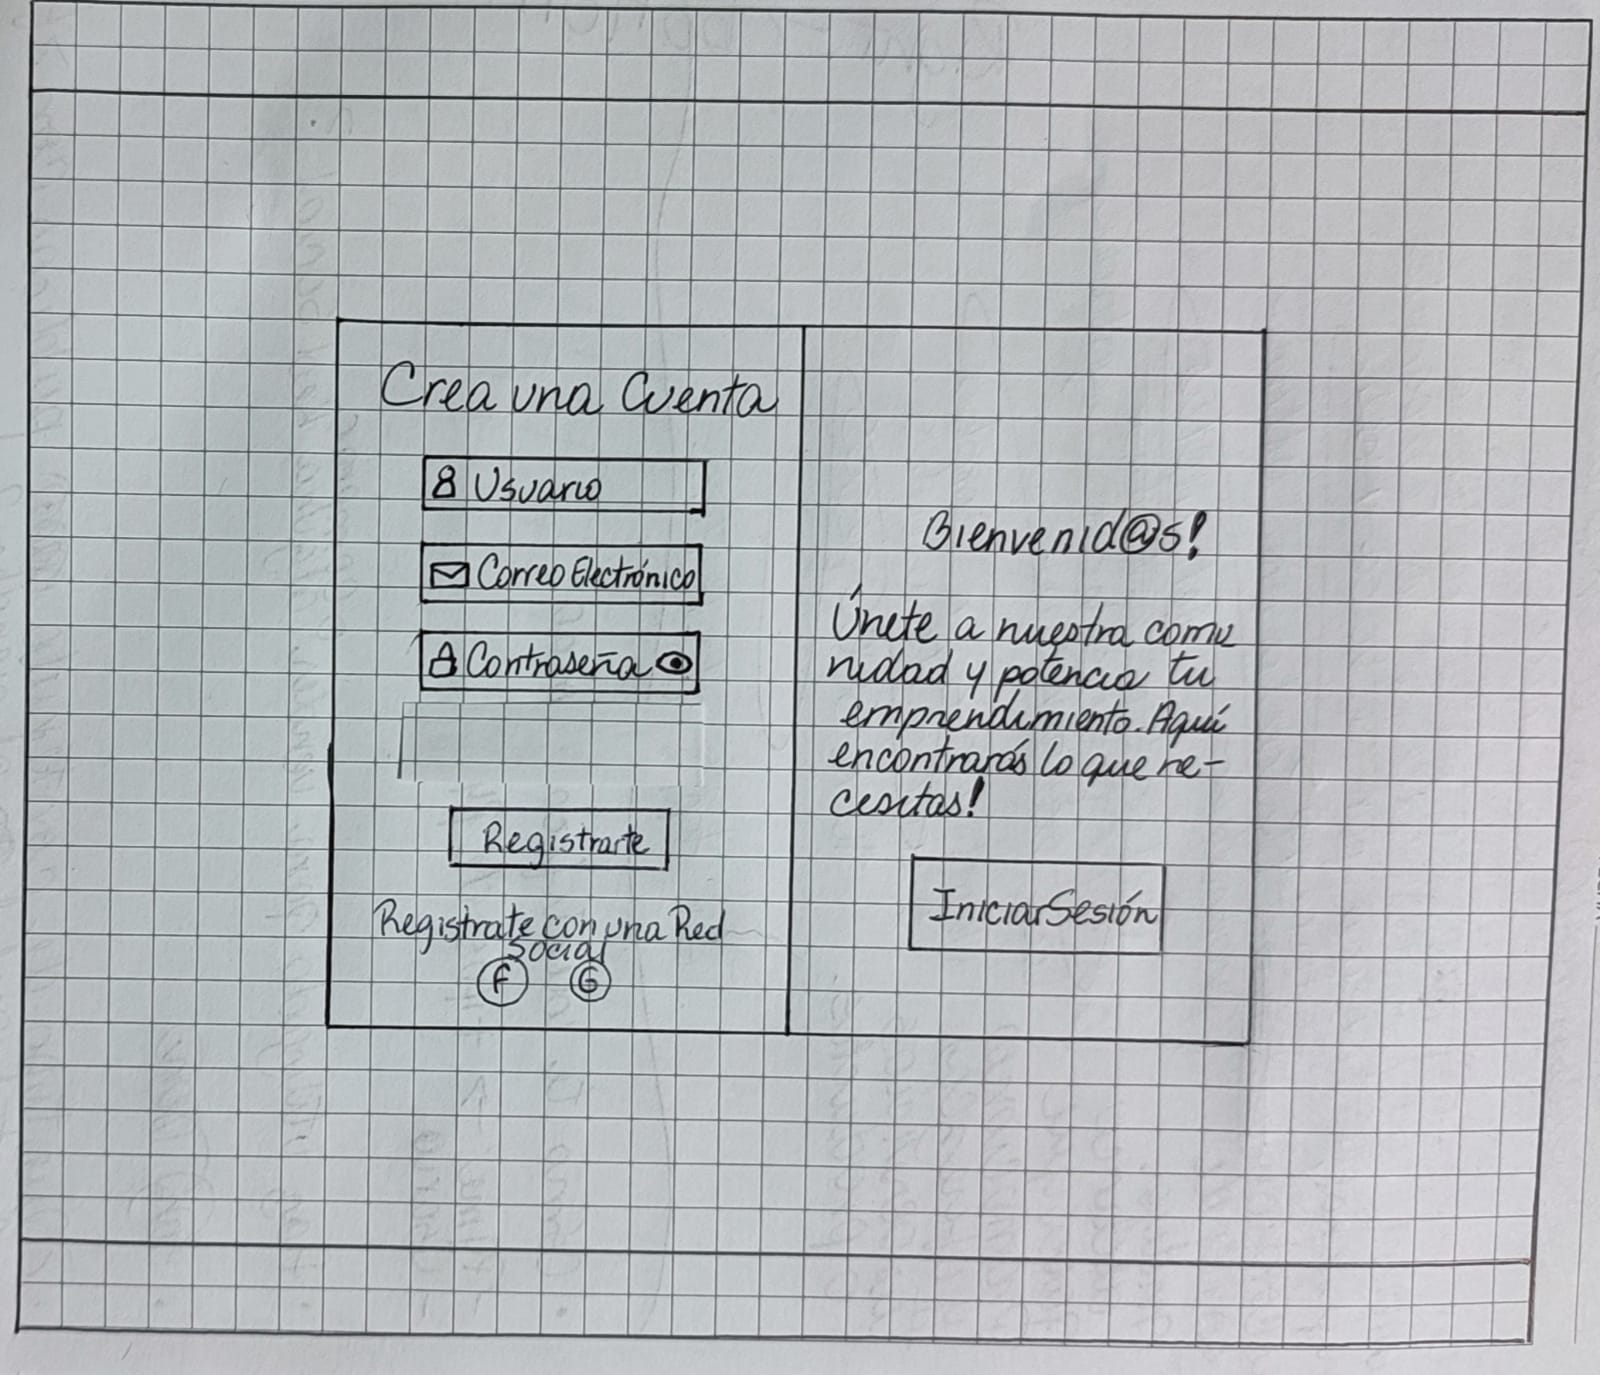 Crea una Cuenta
Usuario
Correo Electrónico
Contraseña
Registrarte
Registrate con una Red
Social
F G
Bienvenid@s!
Únete a nuestra comu
nidad y potencia tu
emprendimiento. Aquí
encontrarás lo que ne-
cesitas!
Iniciar Sesión